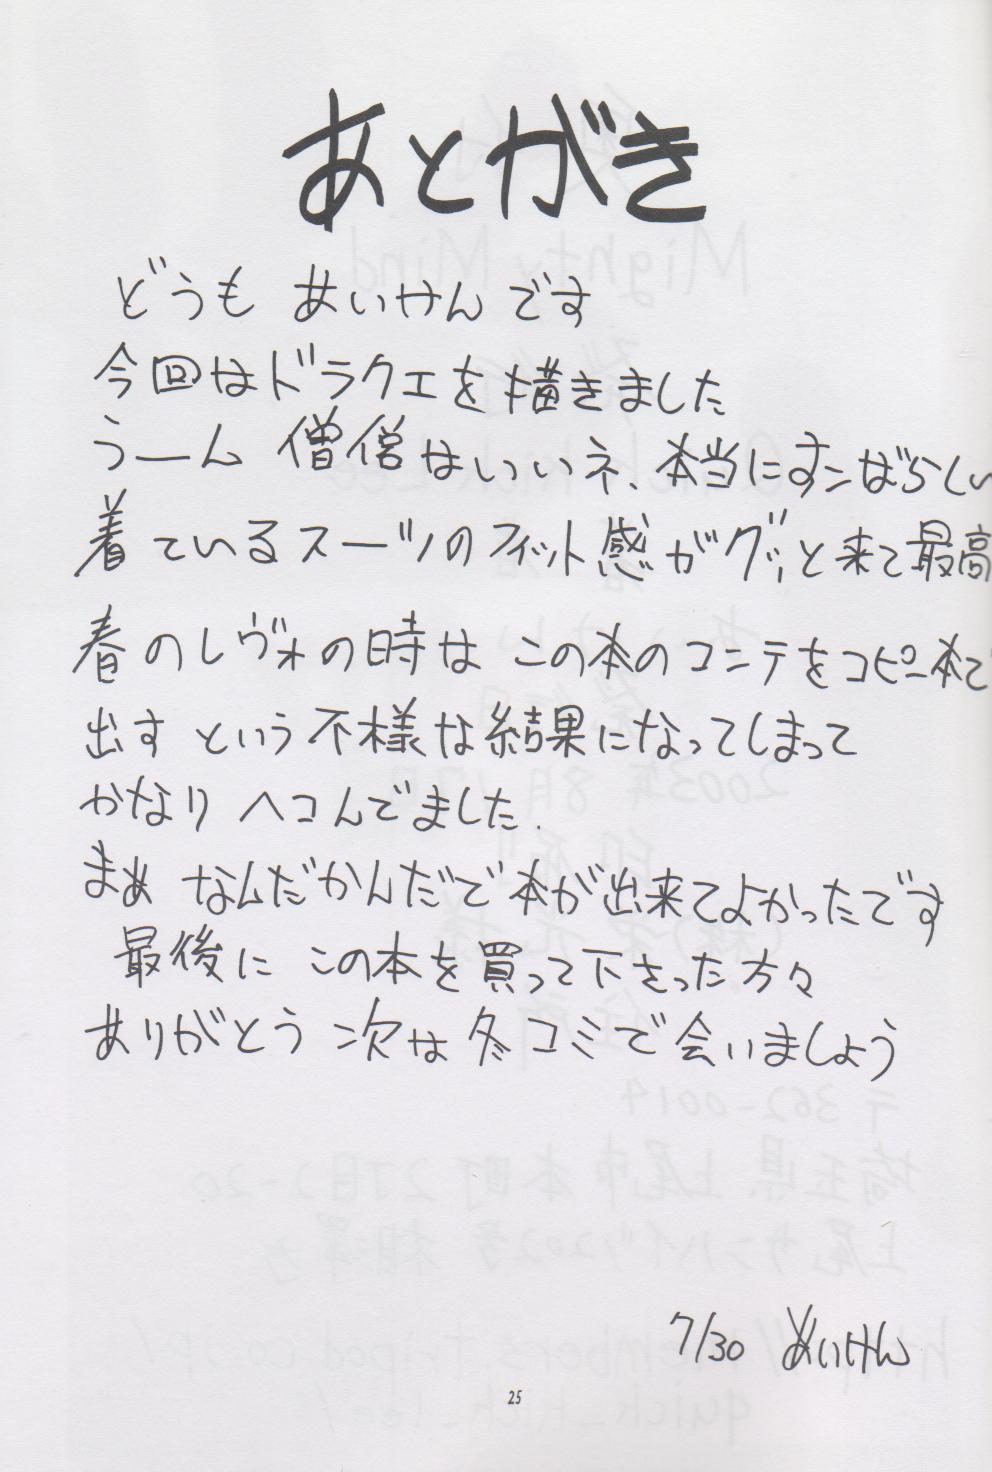 あとがき
どうも あいけんです
今回はドラクエを描きました
うーん 僧侶はいいネ、本当にすンばらしい
着ているスーツのフィット感がグッと来て最高
春のレヴォの時は この本のコンテをコピー本で
出す という 不様な結果になってしまって
かなり ヘコんでました.
まぁ なんだかんだで 本が出来てよかったです
最後に この本を買って下さった方々
ありがとう 次は 冬コミで会いましょう
7/30 あいけん
25